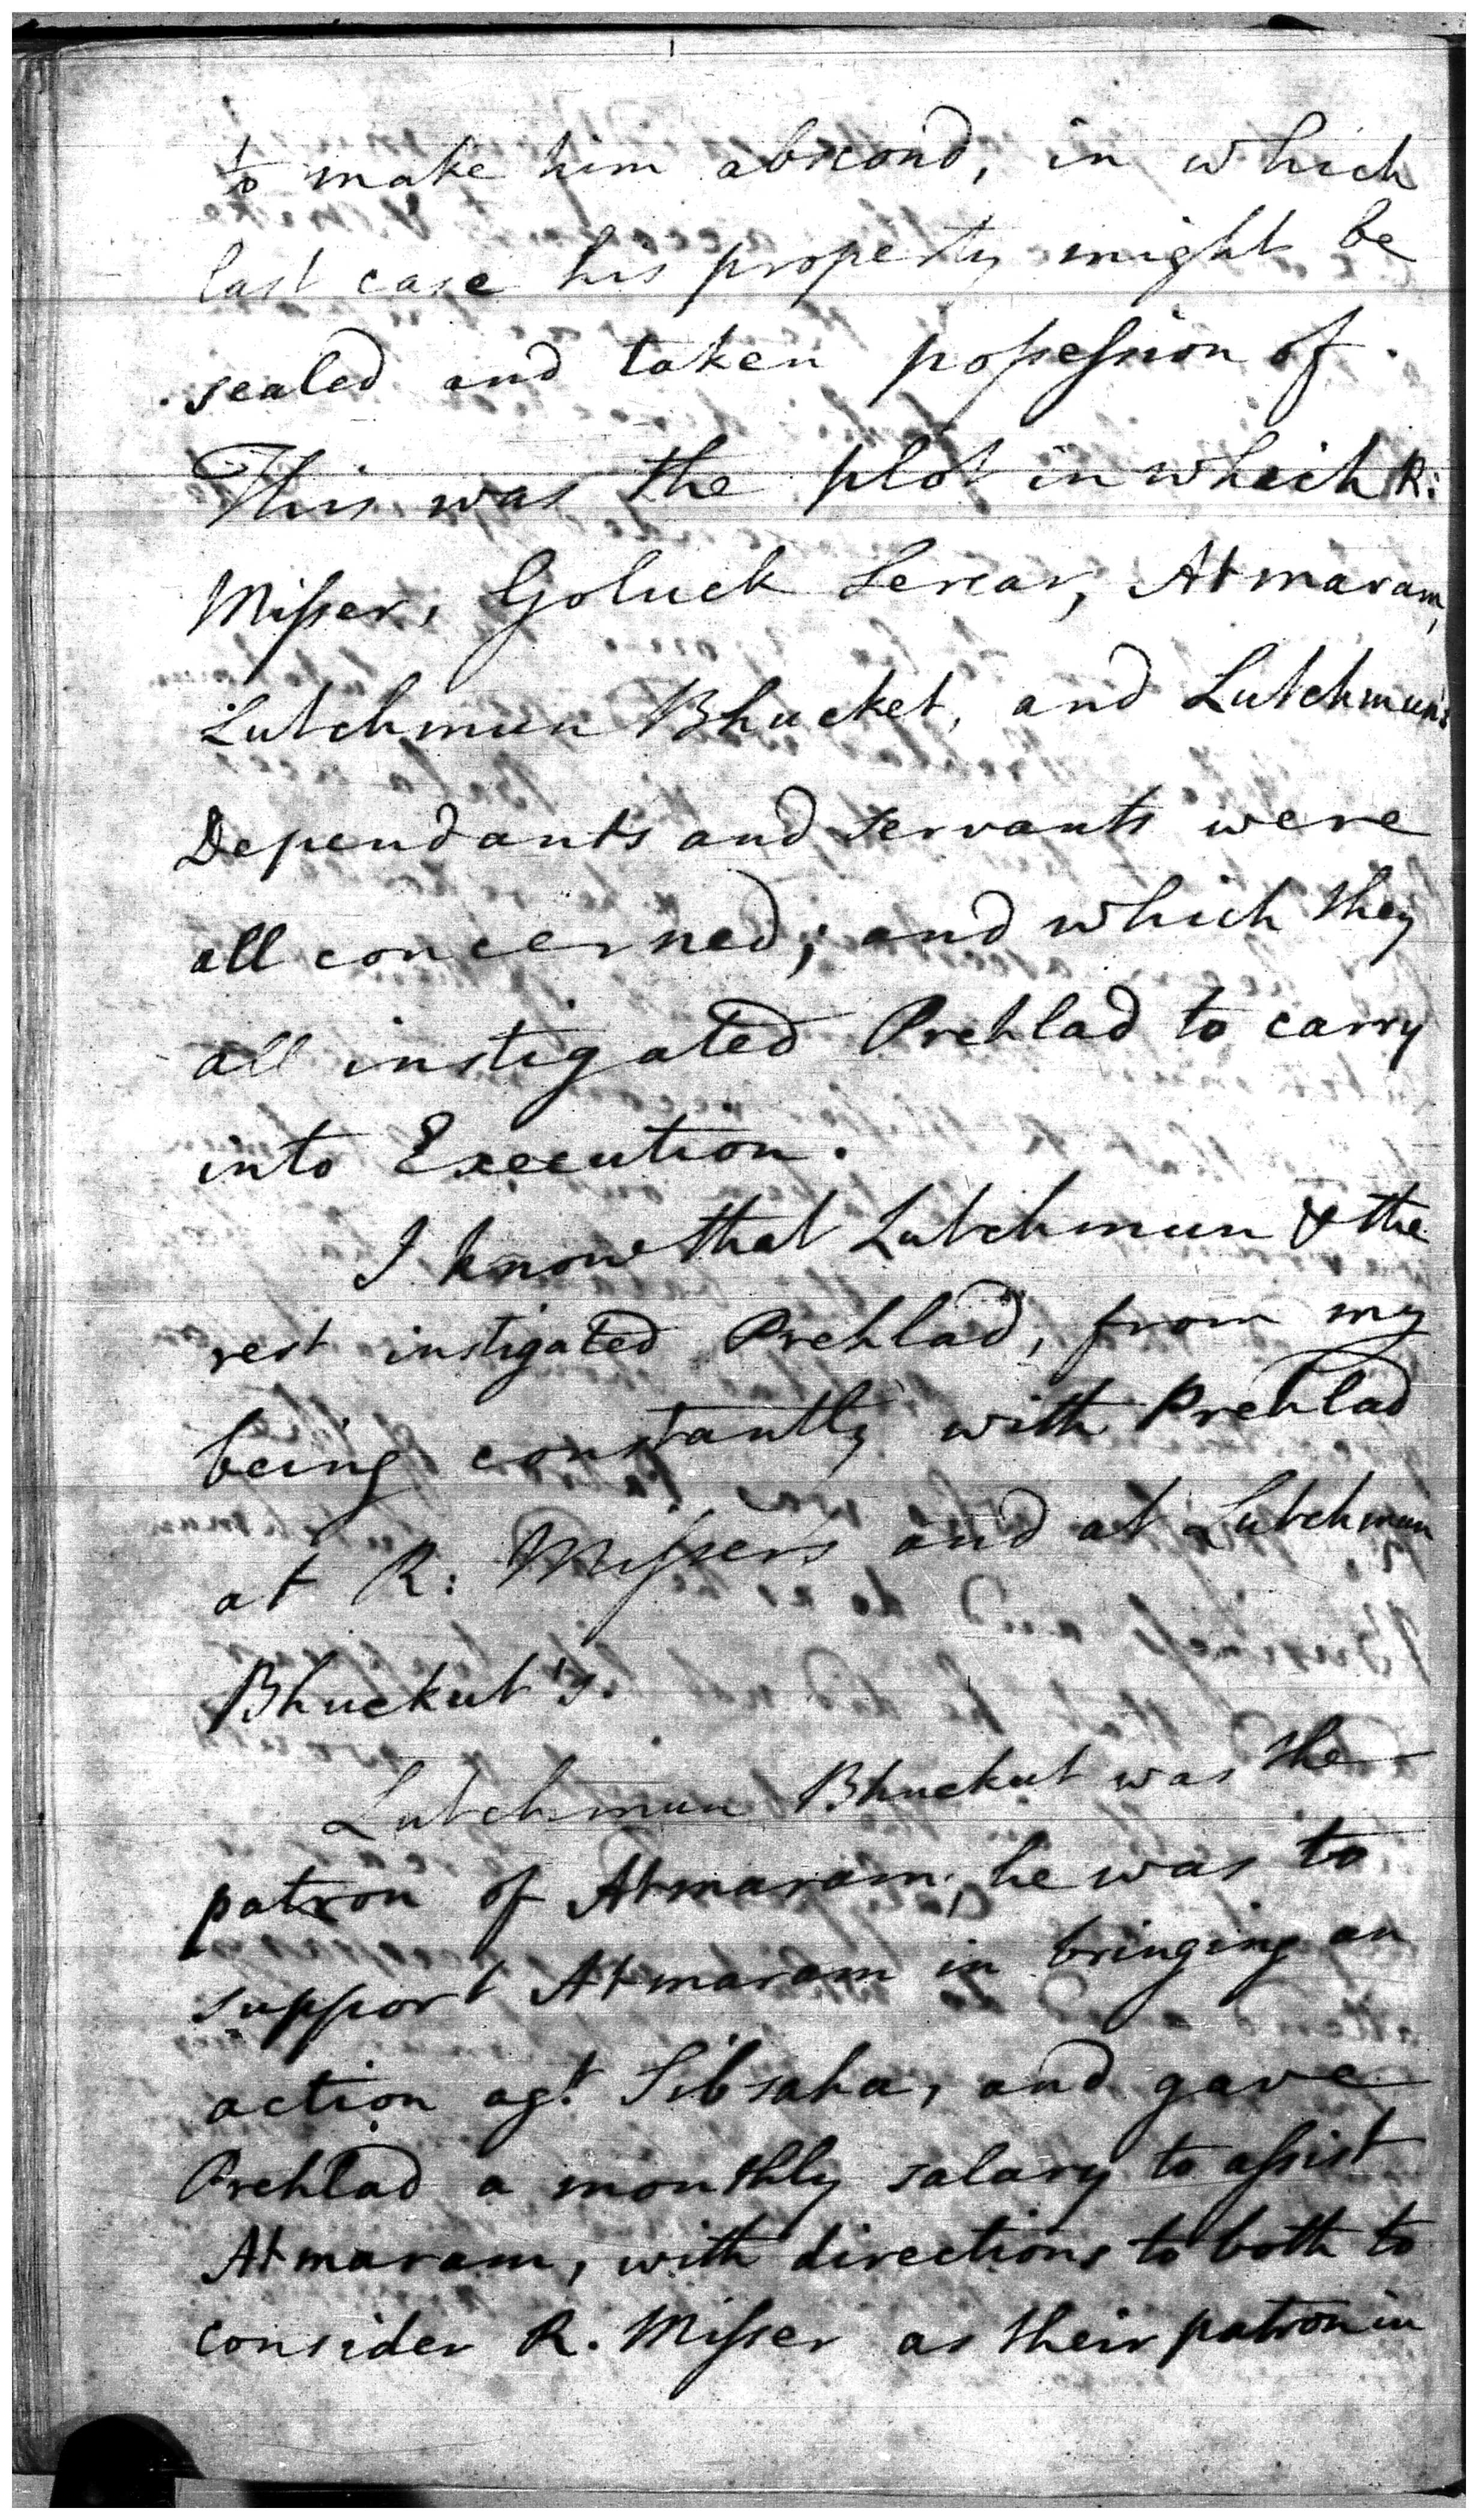 to make him abscond, in which
last case his property might be
sealed and taken possession of.
This was the plot in which R:
Misser, Goluck Sercar, Atmaram,
Lutchmun Bhucket, and Lutchmun's
Dependants and servants were
all concerned; and which they
all instigated Prehlad to carry
into Execution.
I know that Lutchmun & the
rest instigated Prehlad, from my
being constantly with Prehlad
at R: Missers and at Lutchmun
Bhuckut's.
Lutchmun Bhuckut was the
patron of Atmaram, he was to
support Atmaram in bringing an
action agt. Sibsaha, and gave
Prehlad a monthly salary to assist
Atmaram, with directions to both to
consider R. Misser as their patron in